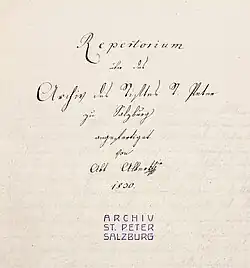 Repertorium
über das
Archiv des Stiftes St. Peter
zu Salzburg
angefertiget
von
Abt Albert
1830.
ARCHIV
ST. PETER
SALZBURG